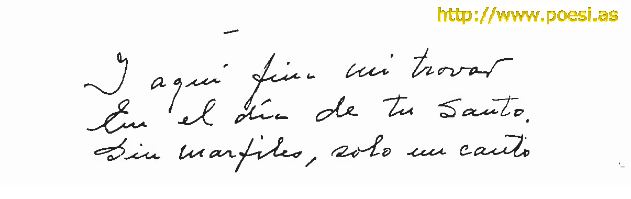 http://www.poesi.as
Y aquí fina mi trovar
En el día de tu Santo.
Sin marfiles, solo un canto